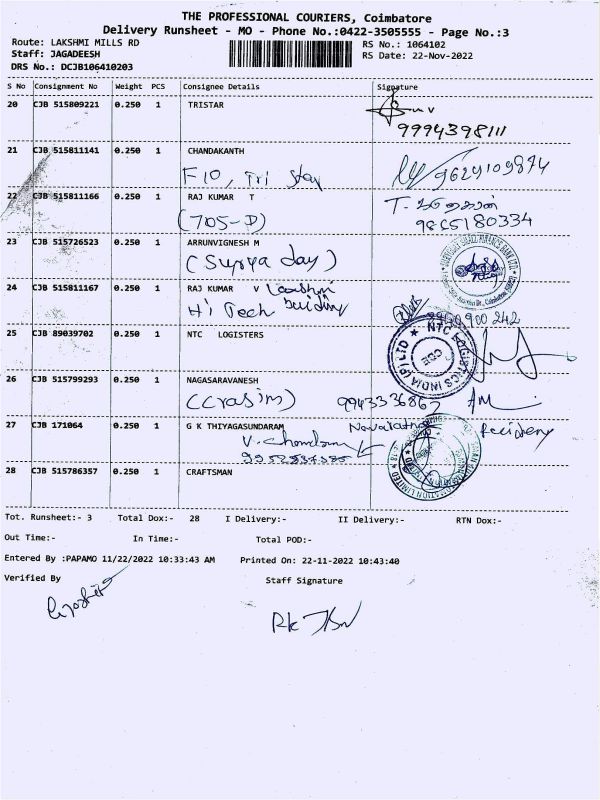 THE PROFESSIONAL COURIERS, Coimbatore
Delivery Runsheet - MO - Phone No.:0422-3505555 - Page No.:3
Route: LAKSHMI MILLS RD
RS No.: 1064102
Staff: JAGADEESH
RS Date: 22-Nov-2022
DRS No.: DCJB106410203
S No Consignment No Weight PCS Consignee Details Signature
20 CJB 515809221 0.250 1 TRISTAR
9994398111
21 CJB 515811141 0.250 1 CHANDAKANTH
F10, Tri Star
9629109874
22 CJB 515811166 0.250 1 RAJ KUMAR T
(705-D)
9865180334
23 CJB 515726523 0.250 1 ARRUNVIGNESH M
(Surya day)
24 CJB 515811167 0.250 1 RAJ KUMAR V Lakshmi
Hi Tech building
900 242
25 CJB 89039702 0.250 1 NTC LOGISTERS
NTC LOGISTICS INDIA (P) LTD
CBE
26 CJB 515799293 0.250 1 NAGASARAVANESH
9943336867
27 CJB 171064 0.250 1 G K THIYAGASUNDARAM
28 CJB 515786357 0.250 1 CRAFTSMAN
Tot. Runsheet:- 3 Total Dox:- 28 I Delivery:- II Delivery:- RTN Dox:-
Out Time:- In Time:- Total POD:-
Entered By :PAPAMO 11/22/2022 10:33:43 AM Printed On: 22-11-2022 10:43:40
Verified By Staff Signature